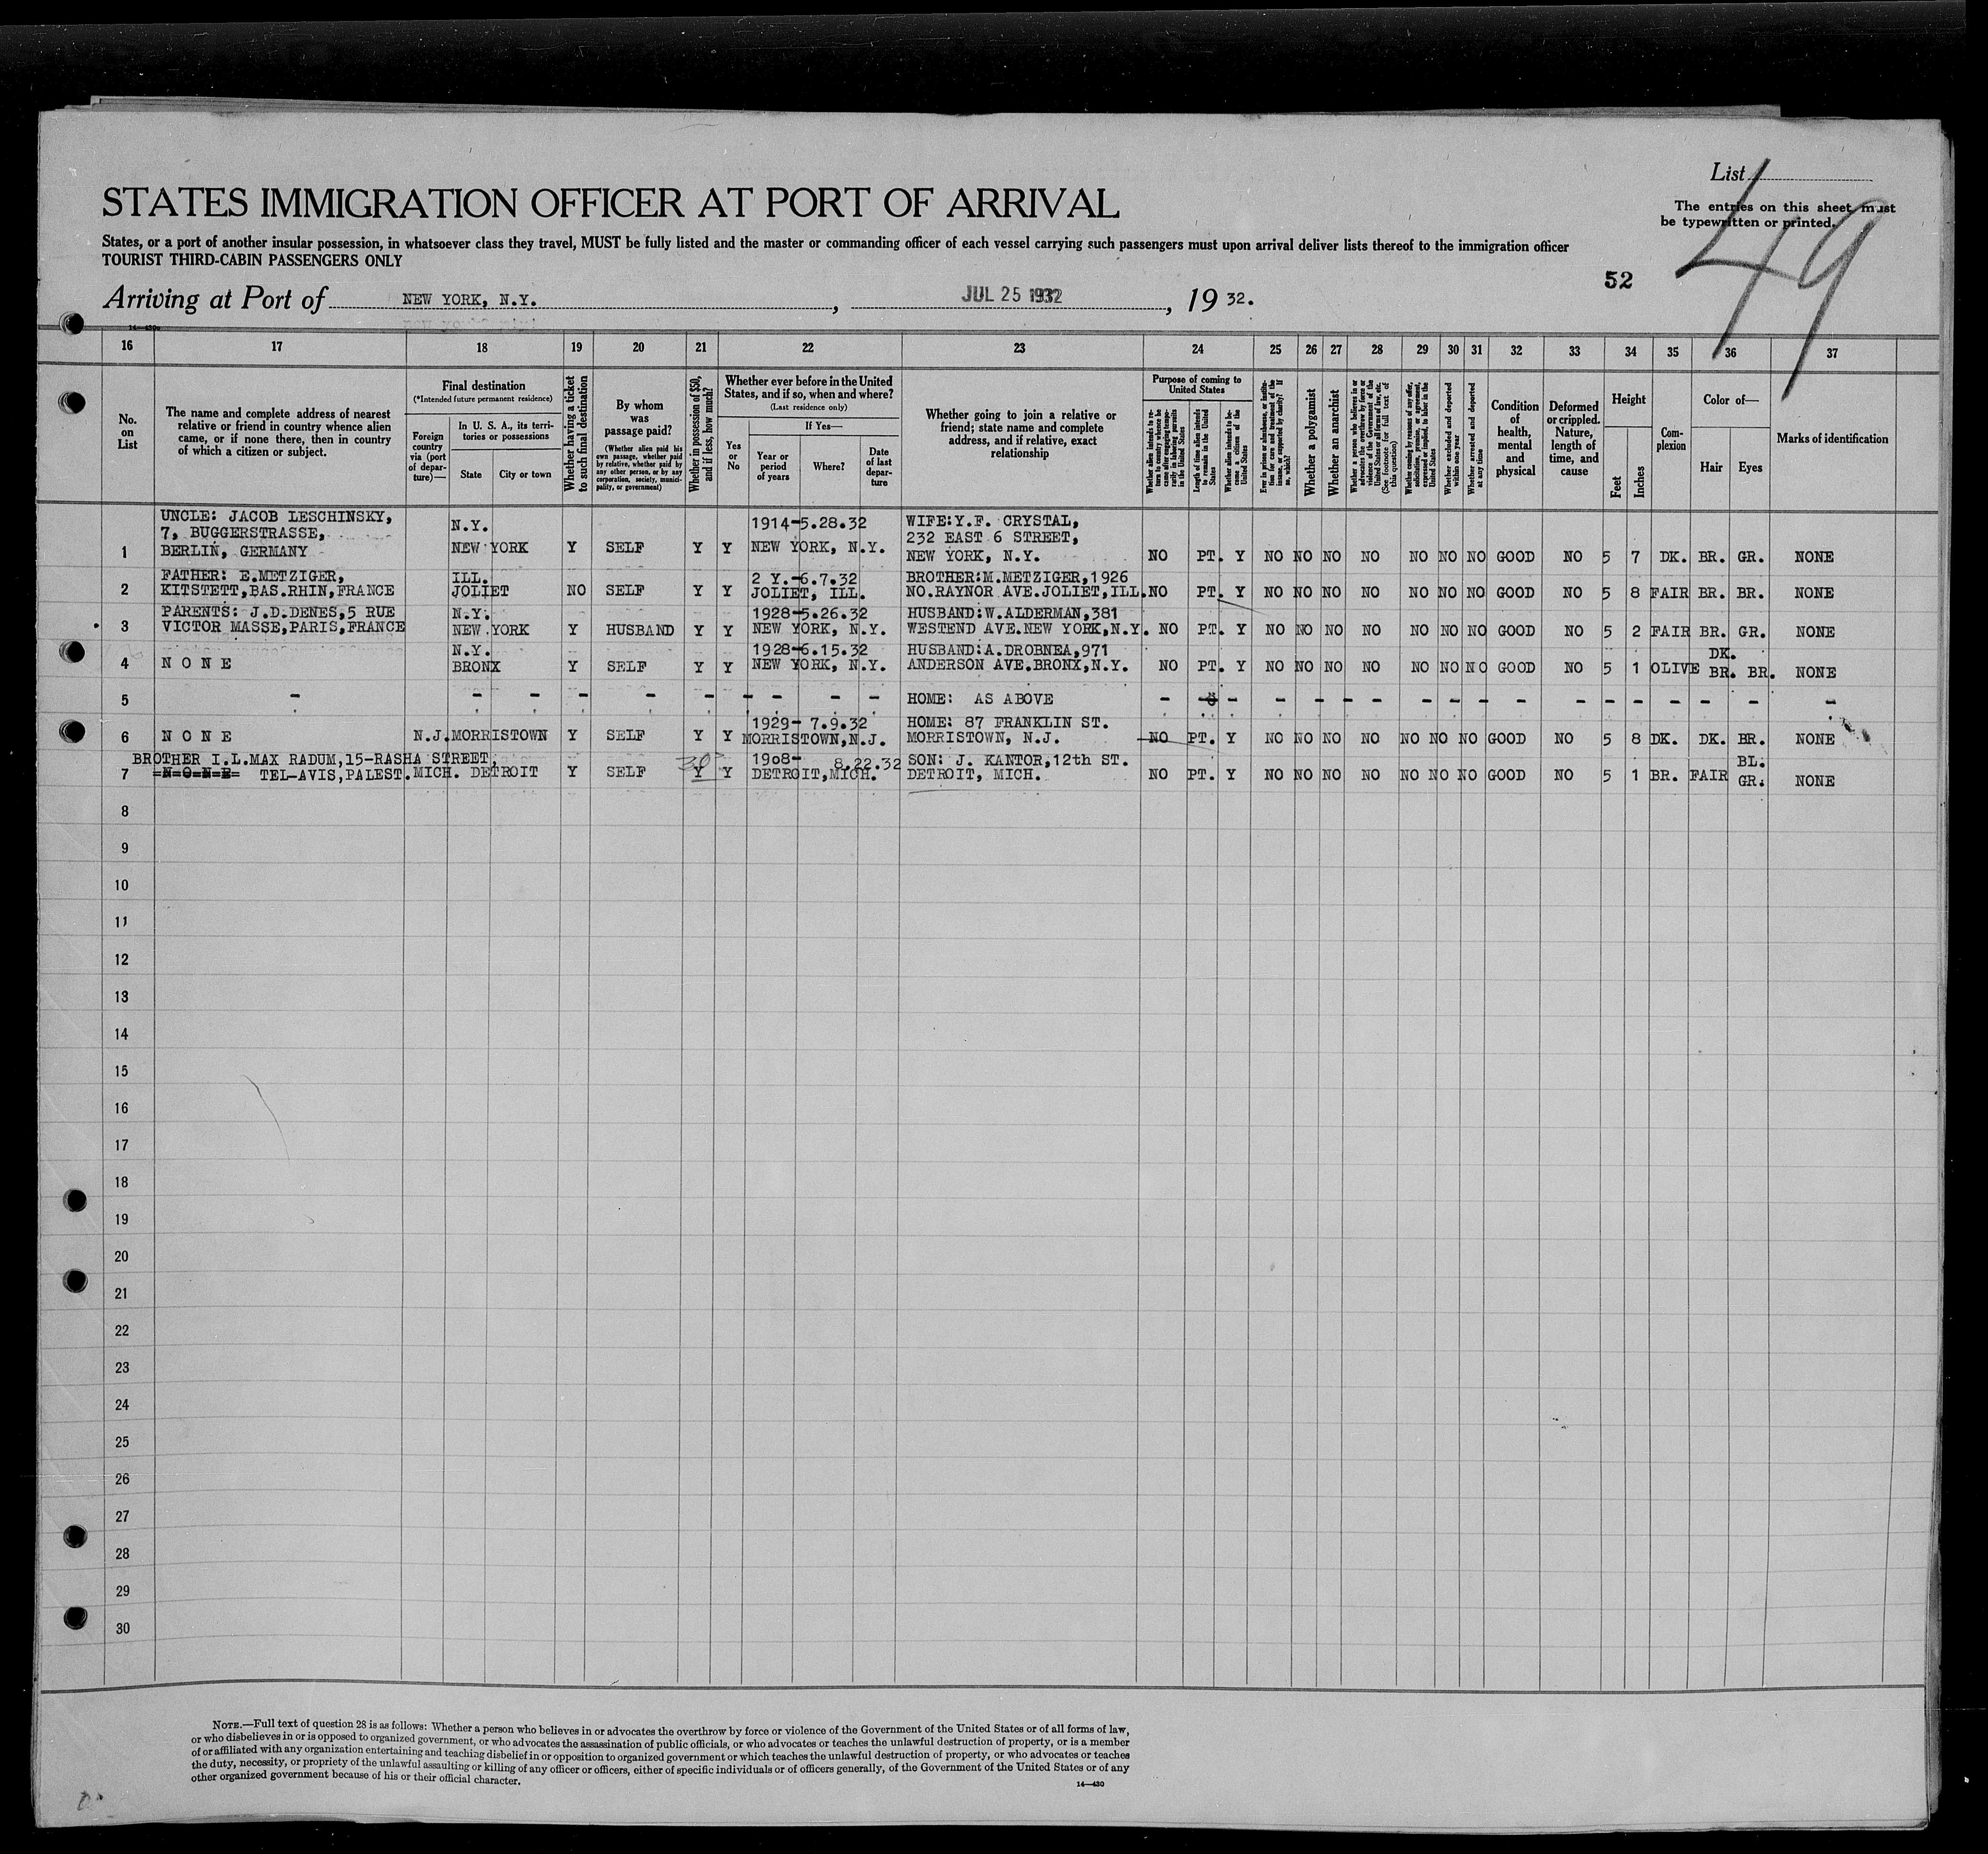 List
49
STATES IMMIGRATION OFFICER AT PORT OF ARRIVAL
The entries on this sheet must
be typewritten or printed.
States, or a port of another insular possession, in whatsoever class they travel, MUST be fully listed and the master or commanding officer of each vessel carrying such passengers must upon arrival deliver lists thereof to the immigration officer
TOURIST THIRD-CABIN PASSENGERS ONLY
52
Arriving at Port of NEW YORK, N.Y. , JUL 25 1932 , 19 32.
14—430
16 17 18 19 20 21 22 23 24 25 26 27 28 29 30 31 32 33 34 35 36 37
No. on List
The name and complete address of nearest relative or friend in country whence alien came, or if none there, then in country of which a citizen or subject.
Final destination
(*Intended future permanent residence)
Foreign country via (port of departure)—
In U. S. A., its territories or possessions
State
City or town
Whether having a ticket to such final destination
By whom was passage paid?
(Whether alien paid his own passage, whether paid by relative, whether paid by any other person, or by any corporation, society, municipality, or government)
Whether in possession of $50, and if less, how much?
Whether ever before in the United States, and if so, when and where?
(Last residence only)
Yes or No
If Yes—
Year or period of years
Where?
Date of last departure
Whether going to join a relative or friend; state name and complete address, and if relative, exact relationship
Purpose of coming to United States
Whether alien intends to return to country whence he came after engaging temporarily in laboring pursuits in the United States
Length of time alien intends to remain in the United States
Whether alien intends to become a citizen of the United States
Ever in prison or almshouse, or institution for care and treatment of the insane, or supported by charity? If so, which?
Whether a polygamist
Whether an anarchist
Whether a person who believes in or advocates the overthrow by force or violence of the Government of the United States or all forms of law, etc. (See footnote for full text of this question)
Whether coming by reason of any offer, solicitation, promise, or agreement, expressed or implied, to labor in the United States
Whether excluded and deported within one year
Whether arrested and deported at any time
Condition of health, mental and physical
Deformed or crippled. Nature, length of time, and cause
Height
Feet
Inches
Complexion
Color of—
Hair
Eyes
Marks of identification
UNCLE: JACOB LESCHINSKY, N.Y. 1914-5.28.32 WIFE:Y.F. CRYSTAL,
7, BUGGERSTRASSE, 232 EAST 6 STREET,
1 BERLIN, GERMANY NEW YORK Y SELF Y Y NEW YORK, N.Y. NEW YORK, N.Y. NO PT. Y NO NO NO NO NO NO NO GOOD NO 5 7 DK. BR. GR. NONE
FATHER: E.METZIGER, ILL. 2 Y.-6.7.32 BROTHER:M.METZIGER,1926
2 KITSTETT,BAS.RHIN,FRANCE JOLIET NO SELF Y Y JOLIET, ILL. NO.RAYNOR AVE.JOLIET,ILL. NO PT. Y NO NO NO NO NO NO NO GOOD NO 5 8 FAIR BR. BR. NONE
PARENTS: J.D.DENES,5 RUE N.Y. 1928-5.26.32 HUSBAND:W.ALDERMAN,381
3 VICTOR MASSE,PARIS,FRANCE NEW YORK Y HUSBAND Y Y NEW YORK, N.Y. WESTEND AVE.NEW YORK,N.Y. NO PT. Y NO NO NO NO NO NO NO GOOD NO 5 2 FAIR BR. GR. NONE
N.Y. 1928-6.15.32 HUSBAND:A.DROBNEA,971 DK.
4 N O N E BRONX Y SELF Y Y NEW YORK, N.Y. ANDERSON AVE.BRONX,N.Y. NO PT. Y NO NO NO NO NO NO NO GOOD NO 5 1 OLIVE BR. BR. NONE
5 - - - - - - - - - - - HOME: AS ABOVE - - - - - - - - - - - - - - - - - -
1929- 7.9.32 HOME: 87 FRANKLIN ST.
6 N O N E N.J. MORRISTOWN Y SELF Y Y MORRISTOWN,N.J. MORRISTOWN, N.J. NO PT. Y NO NO NO NO NO NO NO GOOD NO 5 8 DK. DK. BR. NONE
BROTHER I.L.MAX RADUM,15-RASHA STREET, 30 1908- 8.22.32 SON: J. KANTOR,12th ST. BL.
7 N-O-N-E TEL-AVIS,PALEST. MICH. DETROIT Y SELF Y Y DETROIT,MICH. DETROIT, MICH. NO PT. Y NO NO NO NO NO NO NO GOOD NO 5 1 BR. FAIR GR. NONE
8
9
10
11
12
13
14
15
16
17
18
19
20
21
22
23
24
25
26
27
28
29
30
NOTE.—Full text of question 28 is as follows: Whether a person who believes in or advocates the overthrow by force or violence of the Government of the United States or of all forms of law,
or who disbelieves in or is opposed to organized government, or who advocates the assassination of public officials, or who advocates or teaches the unlawful destruction of property, or is a member
of or affiliated with any organization entertaining and teaching disbelief in or opposition to organized government or which teaches the unlawful destruction of property, or who advocates or teaches
the duty, necessity, or propriety of the unlawful assaulting or killing of any officer or officers, either of specific individuals or of officers generally, of the Government of the United States or of any
other organized government because of his or their official character.
14—430